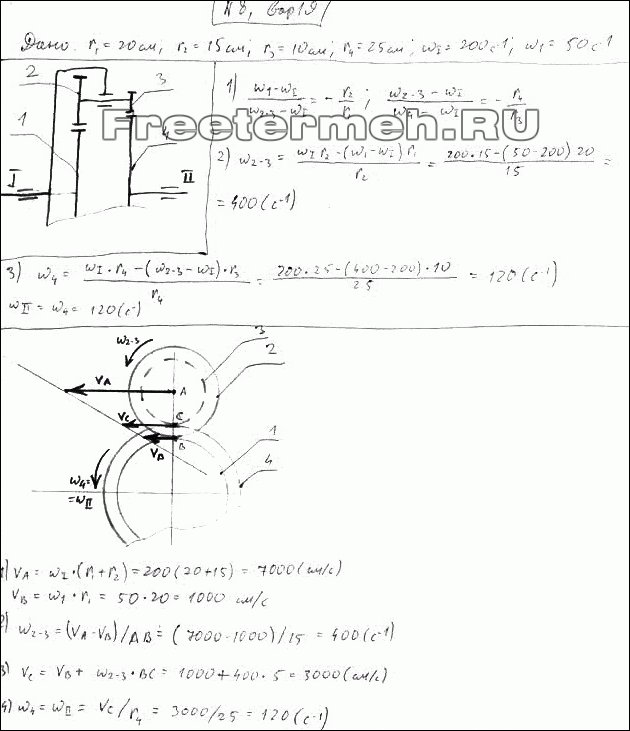 N 8, вар 19
Дано. r₁ = 20 см; r₂ = 15 см; r₃ = 10 см; r₄ = 25 см; ω_I = 200 с⁻¹; ω₁ = 50 с⁻¹
2
3
1
4
I
II
Freetermeh.RU
1) (ω₁-ω_I)/(ω₂₋₃-ω_I) = - r₂/r₁ ; (ω₂₋₃-ω_I)/(ω₄-ω_I) = - r₄/r₃
2) ω₂₋₃ = (ω_I r₂-(ω₁-ω_I) r₁)/r₂ = (200·15-(50-200) 20)/15 =
= 400 (с⁻¹)
3) ω₄ = (ω_I·r₄-(ω₂₋₃-ω_I)·r₃)/r₄ = (200·25-(400-200)·10)/25 = 120 (с⁻¹)
ω_II = ω₄ = 120 (с⁻¹)
ω₂₋₃
3
2
V_A
A
V_C
C
B
V_B
1
4
ω₄=
=ω_II
1) V_A = ω_I·(r₁+r₂) = 200(20+15) = 7000 (см/с)
V_B = ω₁·r₁ = 50·20 = 1000 см/с
2) ω₂₋₃ = (V_A-V_B)/AB = (7000-1000)/15 = 400 (с⁻¹)
3) V_C = V_B + ω₂₋₃·BC = 1000+400·5 = 3000 (см/с)
4) ω₄ = ω_II = V_C/r₄ = 3000/25 = 120 (с⁻¹)